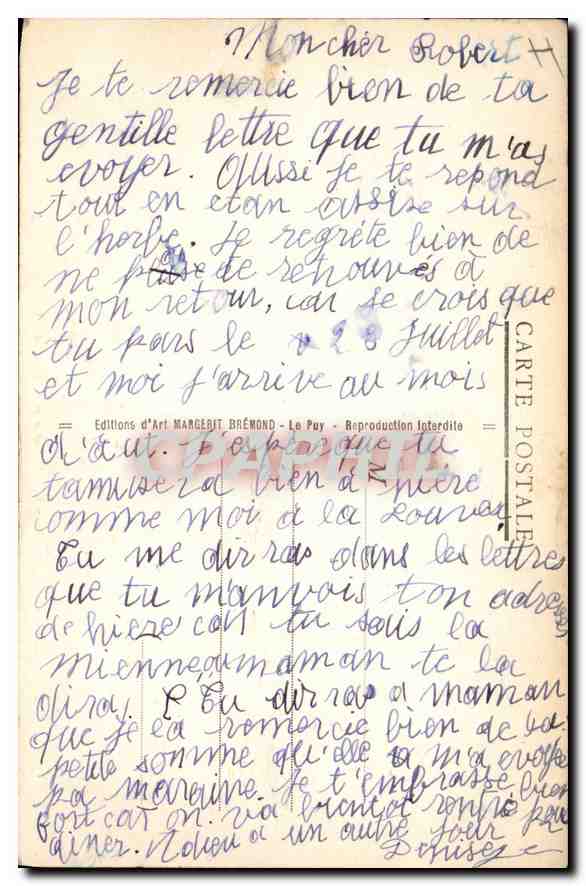 Mon cher Robert
Je te remercie bien de ta
gentille lettre que tu m'as
evoyer. Aussi je te repond
tout en etan assize sur
l'herbe. Je regréte bien de
ne pas te retrouvés à
mon retour, car je crois que
tu pars le 28 Juillet
et moi j'arrive au mois
Editions d'Art MARGERIT BRÉMOND - Le Puy - Reproduction Interdite
CARTE POSTALE
d'aut. J'espère que tu
tamusera bien à
comme moi a la
Tu me dirras dans les lettres
que tu m'anvois ton adresse
de car tu sais la
mienne, maman te la
dira. Tu dirras a maman
que je la remercie bien de la
petite somme qu'elle m'a evoyé
ta maraine. Je t'embrasse bien
fort car on va bientot rentré pour
diner. Adieu a un autre jour
Denise